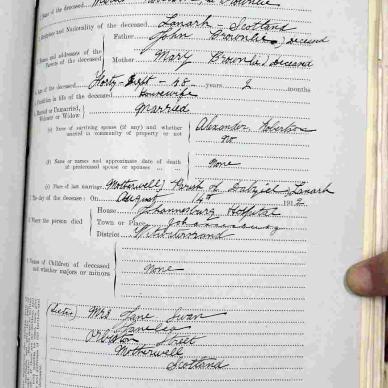 Name of the deceased
Birthplace and Nationality of the deceased Lanark - Scotland
Names and addresses of the Parents of the deceased
Father John Brownlie, Deceased
Mother Mary Brownlie, Deceased
Age of the deceased Forty-Eight - 48 years 2 months
Condition in life of the deceased Housewife
Married or Unmarried, Widower or Widow Married
(a) Name of surviving spouse (if any) and whether married in community of property or not Alexander Robertson
No
(b) Name or names and approximate date of death of predeceased spouse or spouses None
(c) Place of last marriage Motherwell, Parish of Dalziel - Lanark
The day of the decease: On August 14th 191
Where the person died
House Johannesburg Hospital
Town or Place Johannesburg
District Witwatersrand
Names of Children of deceased and whether majors or minors None
(Sister) Mrs Jane Swan
Street
Motherwell
Scotland